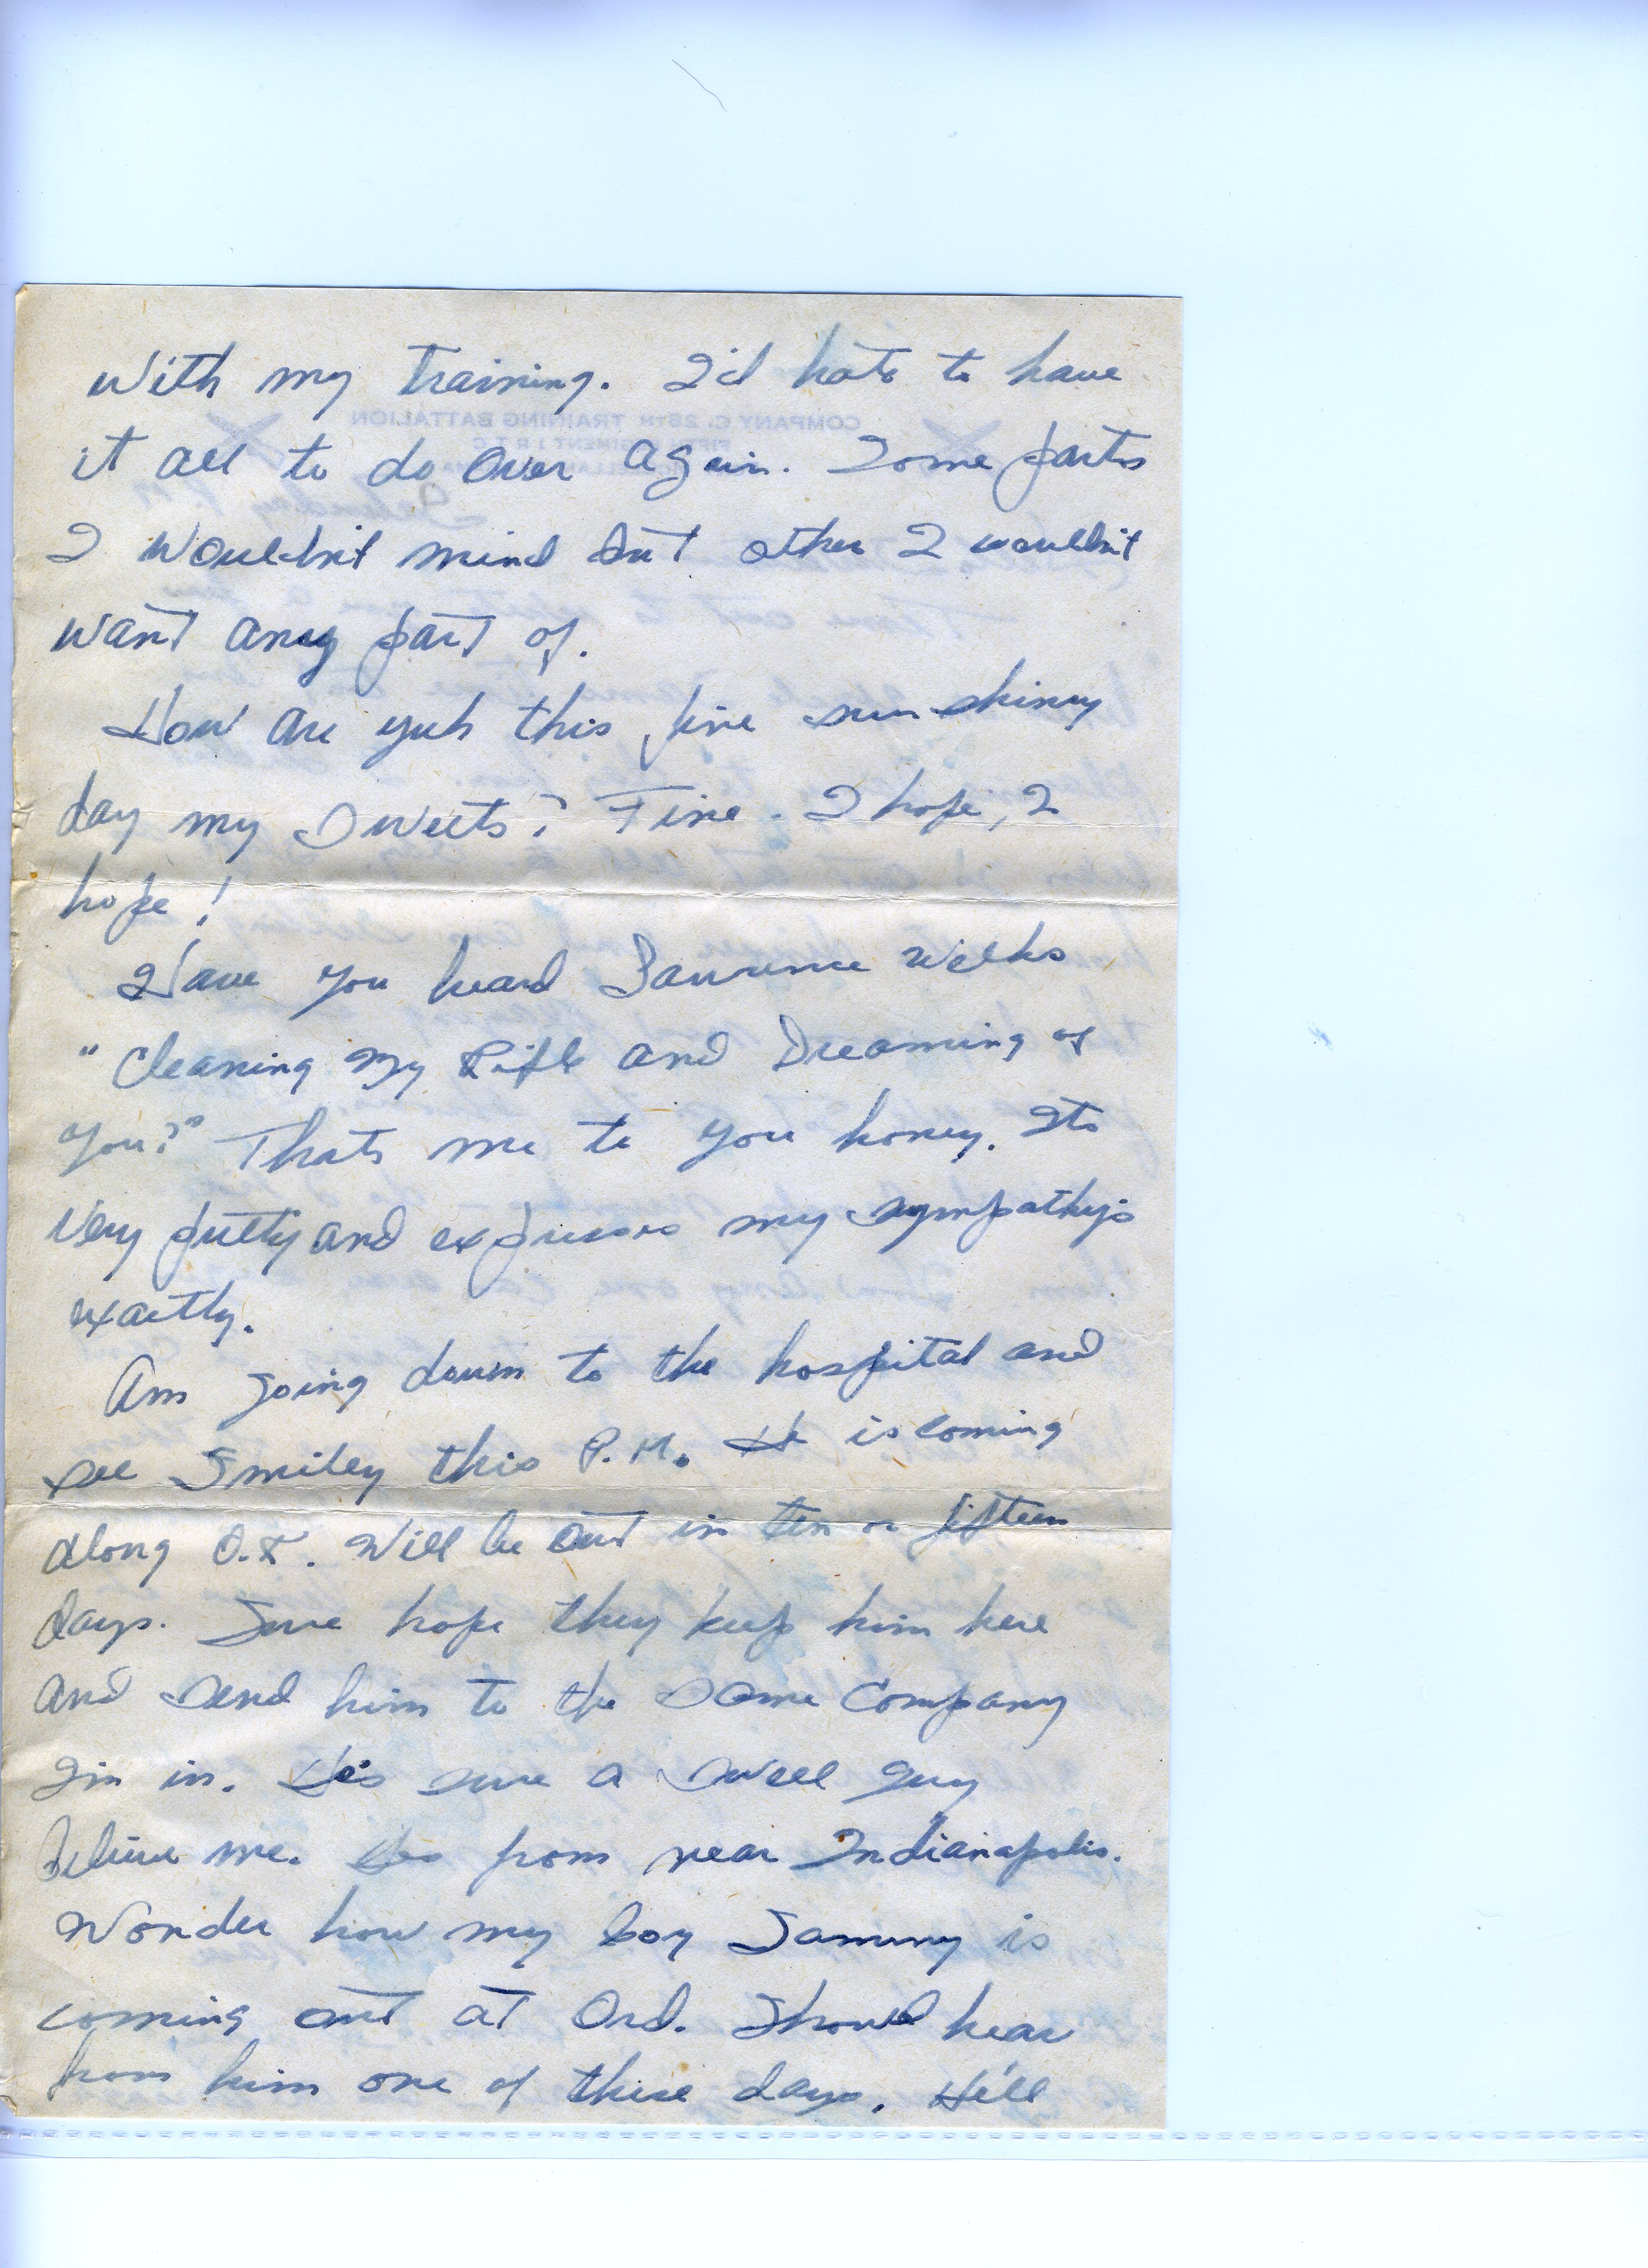 with my training. I'd hate to have
it all to do over again. Some parts
I wouldn't mind but other I wouldn't
want any part of.
How are yuh this fine sun shiney
day my Sweets? Fine. I hope, I
hope!
Have you heard Lawrence Welks
"Cleaning My Rifle and Dreaming of
You?" Thats me to you honey. Its
very pretty and expresses my sympathys
exactly.
Am going down to the hospital and
see Smiley this P.M. He is coming
along O.K. Will be out in ten or fifteen
days. Sure hope they keep him here
and send him to the same Company
I'm in. He's sure a swell guy
believe me. Hes from near Indianapolis.
Wonder how my boy Sammy is
coming out at Ord. Should hear
from him one of these days. He'll
COMPANY C, 28TH TRAINING BATTALION